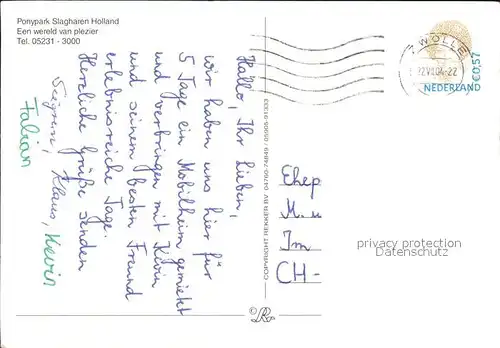 Ponypark Slagharen Holland
Een wereld van plezier
Tel. 05231 - 3000
Hallo, Ihr Lieben,
wir haben uns hier für
5 Tage ein Mobilheim gemietet
und verbringen mit Kevin
und seinem besten Freund
erlebnisreiche Tage.
Herzliche Grüße senden
Klaus, Kevin
Fabian
COPYRIGHT REKKER BV
ZWOLLE
NEDERLAND €0,57
Ehep
M. u
Im
CH-
privacy protection
Datenschutz